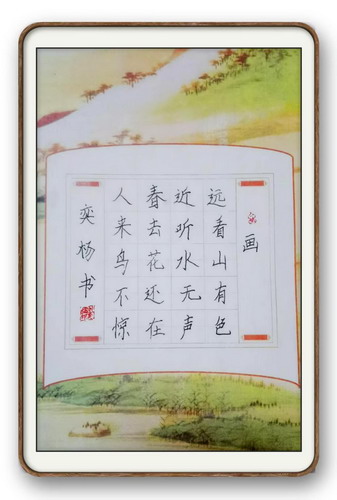 画
远看山有色
近听水无声
春去花还在
人来鸟不惊
奕杨书